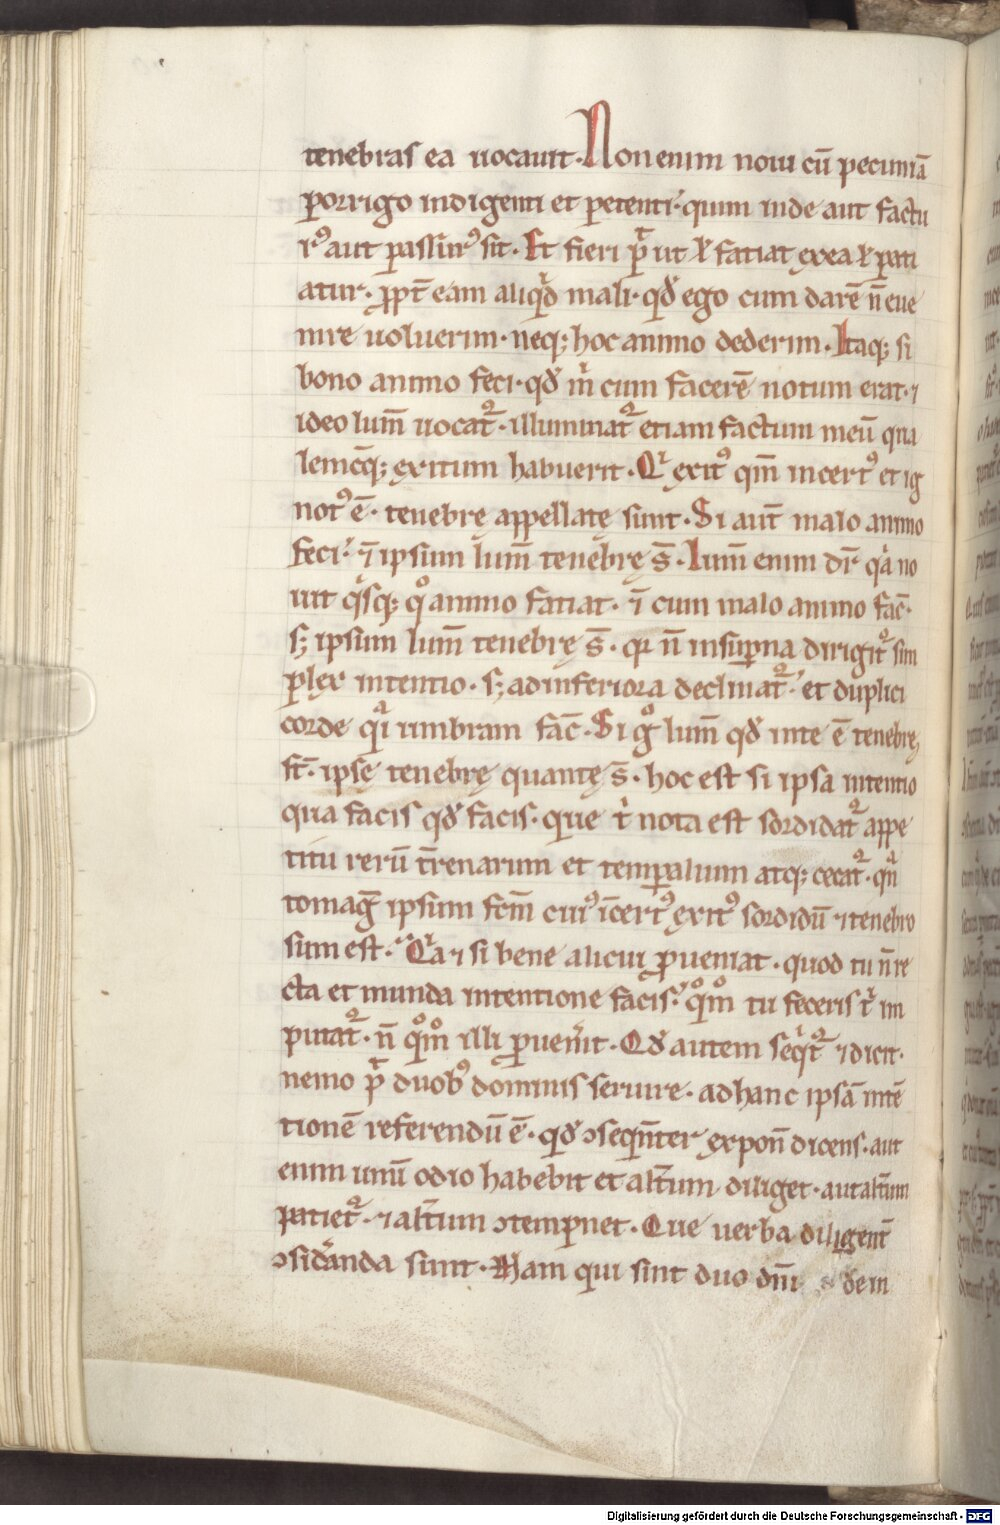 tenebras ea uocauit · Non enim noui cū pecuniā
porrigo indigenti et petenti · quim inde aut factu
rꝰ aut passurꝰ sit · Et fieri p̄t ut ł fatiat ex ea ł pati
atur · ꝓpt̄ eam aliqͥd mali · qđ ego cum darē n̄ eue
nire uoluerim · neqꝫ hoc animo dederim · Itaqꝫ si
bono animo feci · qđ m̄ cum facerē notum erat · ⁊
ideo lum̄ uocat᷑ · illuminat᷑ etiam factum meū qua
lemcūqꝫ exitum habuerit · Qͥ exitꝰ qm̄ incertꝰ et ig
notꝰ ē · tenebrę appellatę sunt · Si aut̄ malo animo
feci · ⁊ ipsum lum̄ tenebrę s̄ · Lum̄ enim dr̄ qͥa no
uit qͥsqꝫ qͦ animo fatiat · ⁊ cum malo animo fac̄ ·
sꝫ ipsum lum̄ tenebrę s̄ · qꝛ n̄ in suꝑna dirigit᷑ sim
plex intentio · sꝫ ad inferiora declinat᷑ · et duplici
corde qͣi umbram fac̄ · Si gͦ lum̄ qđ in te ē tenebrę
st̄ · ipsę tenebrę quantę s̄ · hoc est si ipsa intentio
qua facis qđ facis · que tͥ nota est sordidat᷑ appe
titu rerū t̄renarum et temꝑalium atqꝫ cecat᷑ · qͣn
tomaḡ ipsum fcm̄ cuiꝰ īcertꝰ exitꝰ sordidū ⁊ tenebro
sum est · Qͥa ⁊ si bene alicui ꝓueniat · quod tu n̄ re
cta et munda intentione facis · qͦmͦ tu feceris tͥ im
putat᷑ · n̄ qͦmͦ illi ꝓuen̄it · Qđ autem seqͥt᷑ ⁊ dicit ·
nemo p̄t duobꝰ dominis seruire · ad hanc ipsā intē
tionē referendū ē · qđ ↄseqn̄ter expon̄ dicens · aut
enim unū odio habebit et alt̄um diliget · aut alt̄um
patiet᷑ · ⁊ alt̄um ↄtemꝑnet · Que uerba diligent̄
ↄsid̄anda sunt · Nam qui sint duo dn̄i de in
Digitalisierung gefördert durch die Deutsche Forschungsgemeinschaft - DFG